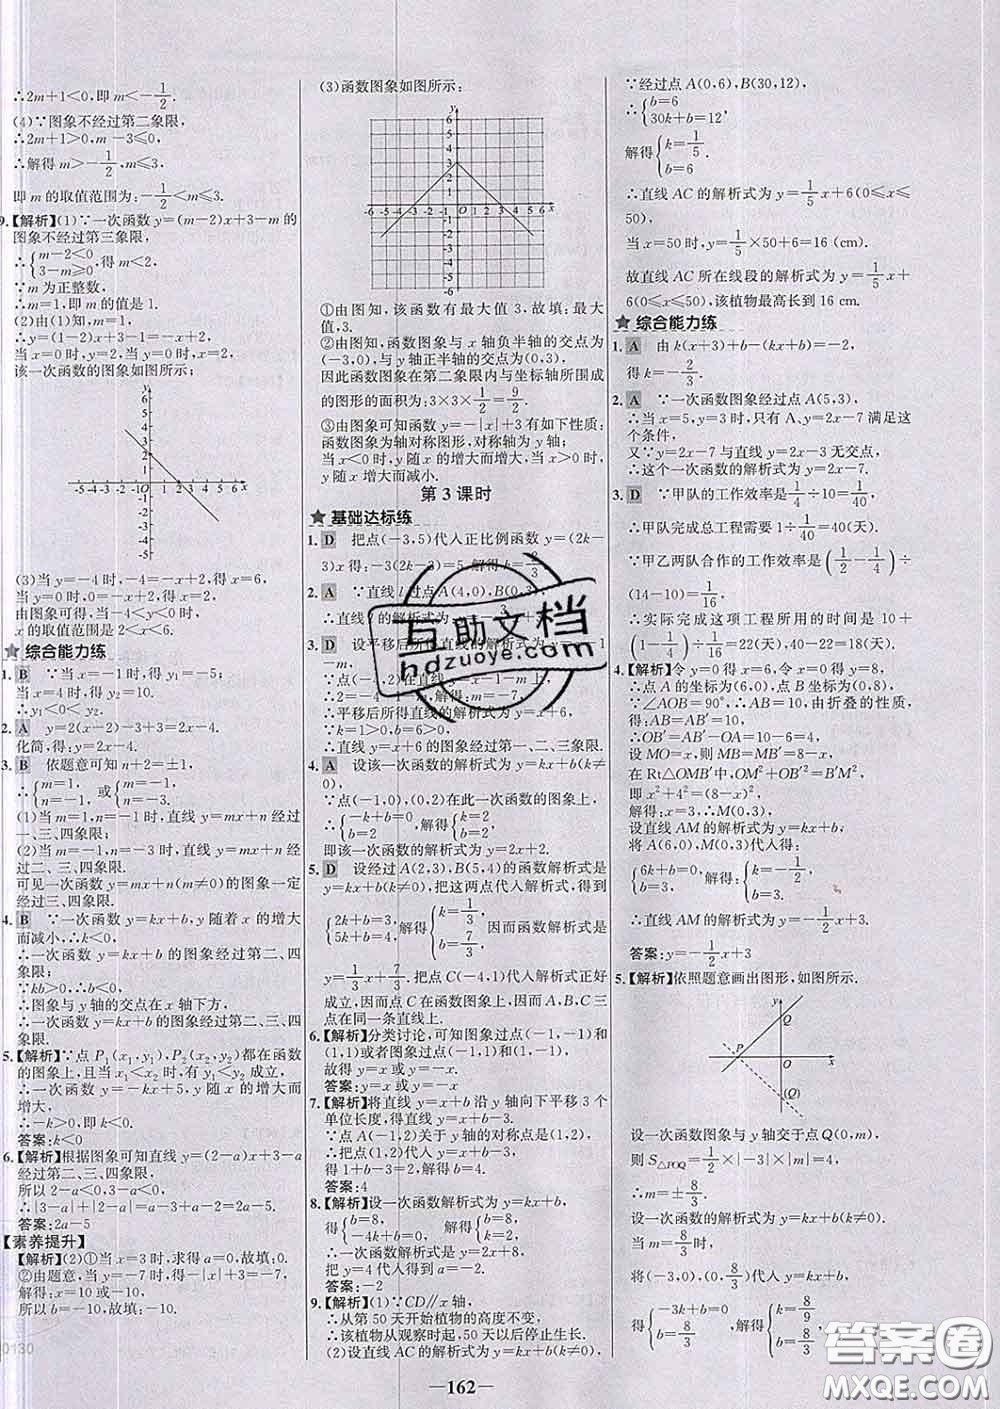 ∴2m+1<0,即 m<-1/2.
(4)∵图象不经过第二象限,
∴2m+1>0,m-3≤0,
∴解得 m>-1/2,m≤3.
即 m 的取值范围为:-1/2<m≤3.
9.【解析】(1)∵一次函数 y=(m-2)x+3-m 的
图象不经过第三象限,
∴{m-2<0 3-m≥0,得 m<2,
∵m 为正整数,
∴m=1,即 m 的值是 1.
(2)由(1)知,m=1,
∴y=(1-2)x+3-1=-x+2,
当 x=0 时,y=2,当 y=0 时,x=2,
该一次函数的图象如图所示:
(3)当 y=-4 时,-4=-x+2,得 x=6,
当 y=0 时,0=-x+2,得 x=2,
由图象可得,当-4<y<0 时,
x 的取值范围是 2<x<6.
综合能力练
1. B ∵当 x=-1 时,得 y₁=-5;
当 x=4 时,得 y₂=10.
∴y₁<0<y₂.
2. A y=2(x-2)-3+3=2x-4.
化简,得:y=2x-4.
3. B 依题意可知 n+2=±1,
∴{m=1, n=-1, 或{m=1, n=-3.
(1)当 m=1,n=-1 时,直线 y=mx+n 经过
一、三、四象限,
(2)当 m=1,n=-3 时,直线 y=mx+n 经过
一、三、四象限.
可见一次函数 y=mx+n(m≠0)的图象一定
经过第一、三、四象限.
4. B ∵一次函数 y=kx+b,y 随着 x 的增大
而减小,∴k<0,
∴一次函数 y=kx+b 的图象经过第二、四
象限;
∵kb>0,∴b<0,
∴图象与 y 轴的交点在 x 轴下方,
∴一次函数 y=kx+b 的图象经过第二、三、四
象限.
5.【解析】∵点 P₁(x₁,y₁),P₂(x₂,y₂)都在函数
的图象上,且当 x₁<x₂ 时,有 y₁<y₂ 成立,
∴一次函数 y=-kx+5 中,y 随 x 的增大而
增大,
∴-k>0,即 k<0.
答案:k<0
6.【解析】根据图象可知直线 y=(2-a)x+3-a
经过第二、三、四象限,
所以 2-a<0,3-a<0,
∴|3-a|+|2-a|=a-3+a-2=2a-5.
答案:2a-5
【素养提升】
【解析】(2)①当 x=3 时,求得 a=0,故填:0.
②由题意,当 y=-7 时,得-|x|+3=-7,
解得:x=10 或 x=-10,
所以 b=-10,故填:-10.
(3)函数图象如图所示:
①由图知,该函数有最大值 3,故填:最大
值,3.
②由图知,函数图象与 x 轴负半轴的交点为
(-3,0),与 y 轴正半轴的交点为(0,3),
因此函数图象在第二象限内与坐标轴所围成
的图形的面积是:3×3×1/2=9/2.
③由图象可知函数 y=-|x|+3 有如下性质:
函数图象为轴对称图形,对称轴为 y 轴;
当 x<0 时,y 随 x 的增大而增大,当 x>0 时,
y 随 x 的增大而减小.
第 3 课时
基础达标练
1. D 把点(-3,5)代入正比例函数 y=(2k-
3)x 得:-3(2k-3)=5,解得 k=2/3.
2. A ∵直线 l 过点 A(4,0),B(0,3),
3. D 设平移后所得直线的解析式为
∴平移后所得直线的解析式为 y=x+6.
∵k=1>0,b=6>0,
∴直线 y=x+6 的图象经过第一、二、三象限.
4. A 设该一次函数的解析式为 y=kx+b(k≠
0),
∵点(-1,0),(0,2)在此一次函数的图象上,
∴{-k+b=0 b=2,解得{k=2 b=2,
即该一次函数的解析式为 y=2x+2.
5. D 设经过 A(2,3),B(5,4)的函数解析式是
y=kx+b(k≠0),把这两点代入解析式,得到
{2k+b=3, 5k+b=4, 解得{k=1/3, b=7/3, 因而函数解析式是
y=1/3x+7/3.把点 C(-4,1)代入解析式正好
成立,因而点 C 在函数图象上,因而 A,B,C 三
点在同一条直线上.
6.【解析】分类讨论,可知图象过点(-1,-1)和
(1,1)或者图象过点(-1,1)和(1,-1),
故得 y=x 或 y=-x
答案:y=x 或 y=-x
7.【解析】将直线 y=x+b 沿 y 轴向下平移 3 个
单位长度,得直线 y=x+b-3.
∵点 A(-1,2)关于 y 轴的对称点是(1,2),
∴把点(1,2)代入 y=x+b-3,
得 1+b-3=2,解得 b=4.
答案:4
8.【解析】设一次函数解析式为 y=kx+b,
得{b=8, -4k+b=0, 解得{k=2, b=8,
∴一次函数解析式是 y=2x+8,
把 y=4 代入得 a=-2.
答案:-2
9.【解析】(1)∵CD∥x 轴,
∴从第 50 天开始植物的高度不变,
∴该植物从观察时起,50 天以后停止长高.
(2)设直线 AC 的解析式为 y=kx+b(k≠0),
∵经过点 A(0,6),B(30,12),
∴{b=6 30k+b=12,
解得{k=1/5, b=6.
∴直线 AC 的解析式为 y=1/5x+6(0≤x≤
50),
当 x=50 时,y=1/5×50+6=16(cm).
故直线 AC 所在线段的解析式为 y=1/5x+
6(0≤x≤50),该植物最高长到 16 cm.
综合能力练
1. A 由 k(x+3)+b-(kx+b)=-2,
得 k=-2/3.
2. A ∵一次函数图象经过点 A(5,3),
∴当 x=5,y=3 时,只有 A、y=2x-7 满足这
个条件,
又∵y=2x-7 与直线 y=2x-3 无交点,
∴这个一次函数的解析式为 y=2x-7.
3. D ∵甲队的工作效率是 1/4÷10=1/40,
∴甲队完成总工程需要 1÷1/40=40(天),
∵甲乙两队合作的工作效率是(1/2-1/4)÷
(14-10)=1/16,
∴实际完成这项工程所用的时间是 10
+(1-1/4)÷1/16=22(天),40-22=18(天).
4.【解析】令 y=0 得 x=6,令 x=0 得 y=8,
∴点 A 的坐标为(6,0),点 B 的坐标为(0,8),
∵∠AOB=90°,∴AB=10,由折叠的性质,
得:AB=AB′=10,
∴OB′=AB′-OA=10-6=4,
设 MO=x,则 MB=MB′=8-x,
在 Rt△OMB′中,OM²+OB′²=B′M²,
即 x²+4²=(8-x)²,
解得:x=3,∴M(0,3),
设直线 AM 的解析式为 y=kx+b,
将 A(6,0),M(0,3)代入得:
{6k+b=0, b=3, 解得:{k=-1/2, b=3.
∴直线 AM 的解析式为 y=-1/2x+3.
答案:y=-1/2x+3
5.【解析】依照题意画出图形,如图所示.
设一次函数图象与 y 轴交于点 Q(0,m),
则 S△POQ=1/2×|-3|×|m|=4,
∴m=±8/3.
设一次函数的解析式为 y=kx+b,
当 m=8/3 时,
将(-3,0),(0,8/3)代入 y=kx+b,
得{-3k+b=0 b=8/3,解得{k=8/9 b=8/3,
— 162 —
互助文档
hdzuoye.com
答案圈
MXQE.COM